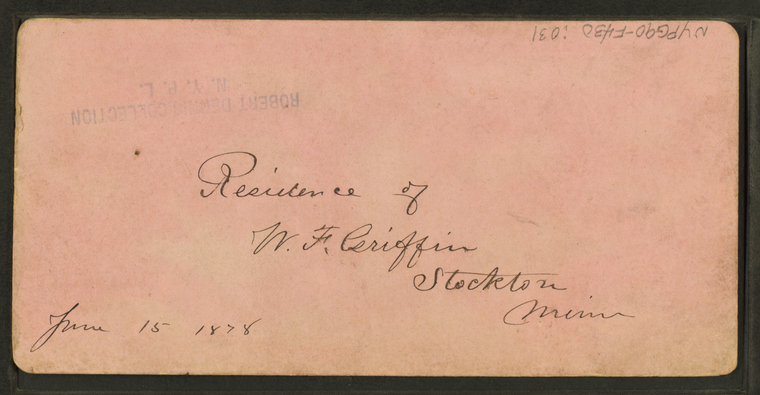 NYPG90-F430 :031
ROBERT DENNIS COLLECTION
N. Y. P. L.
Residence of
W. F. Griffin
Stockton
Minn
June 15 1878